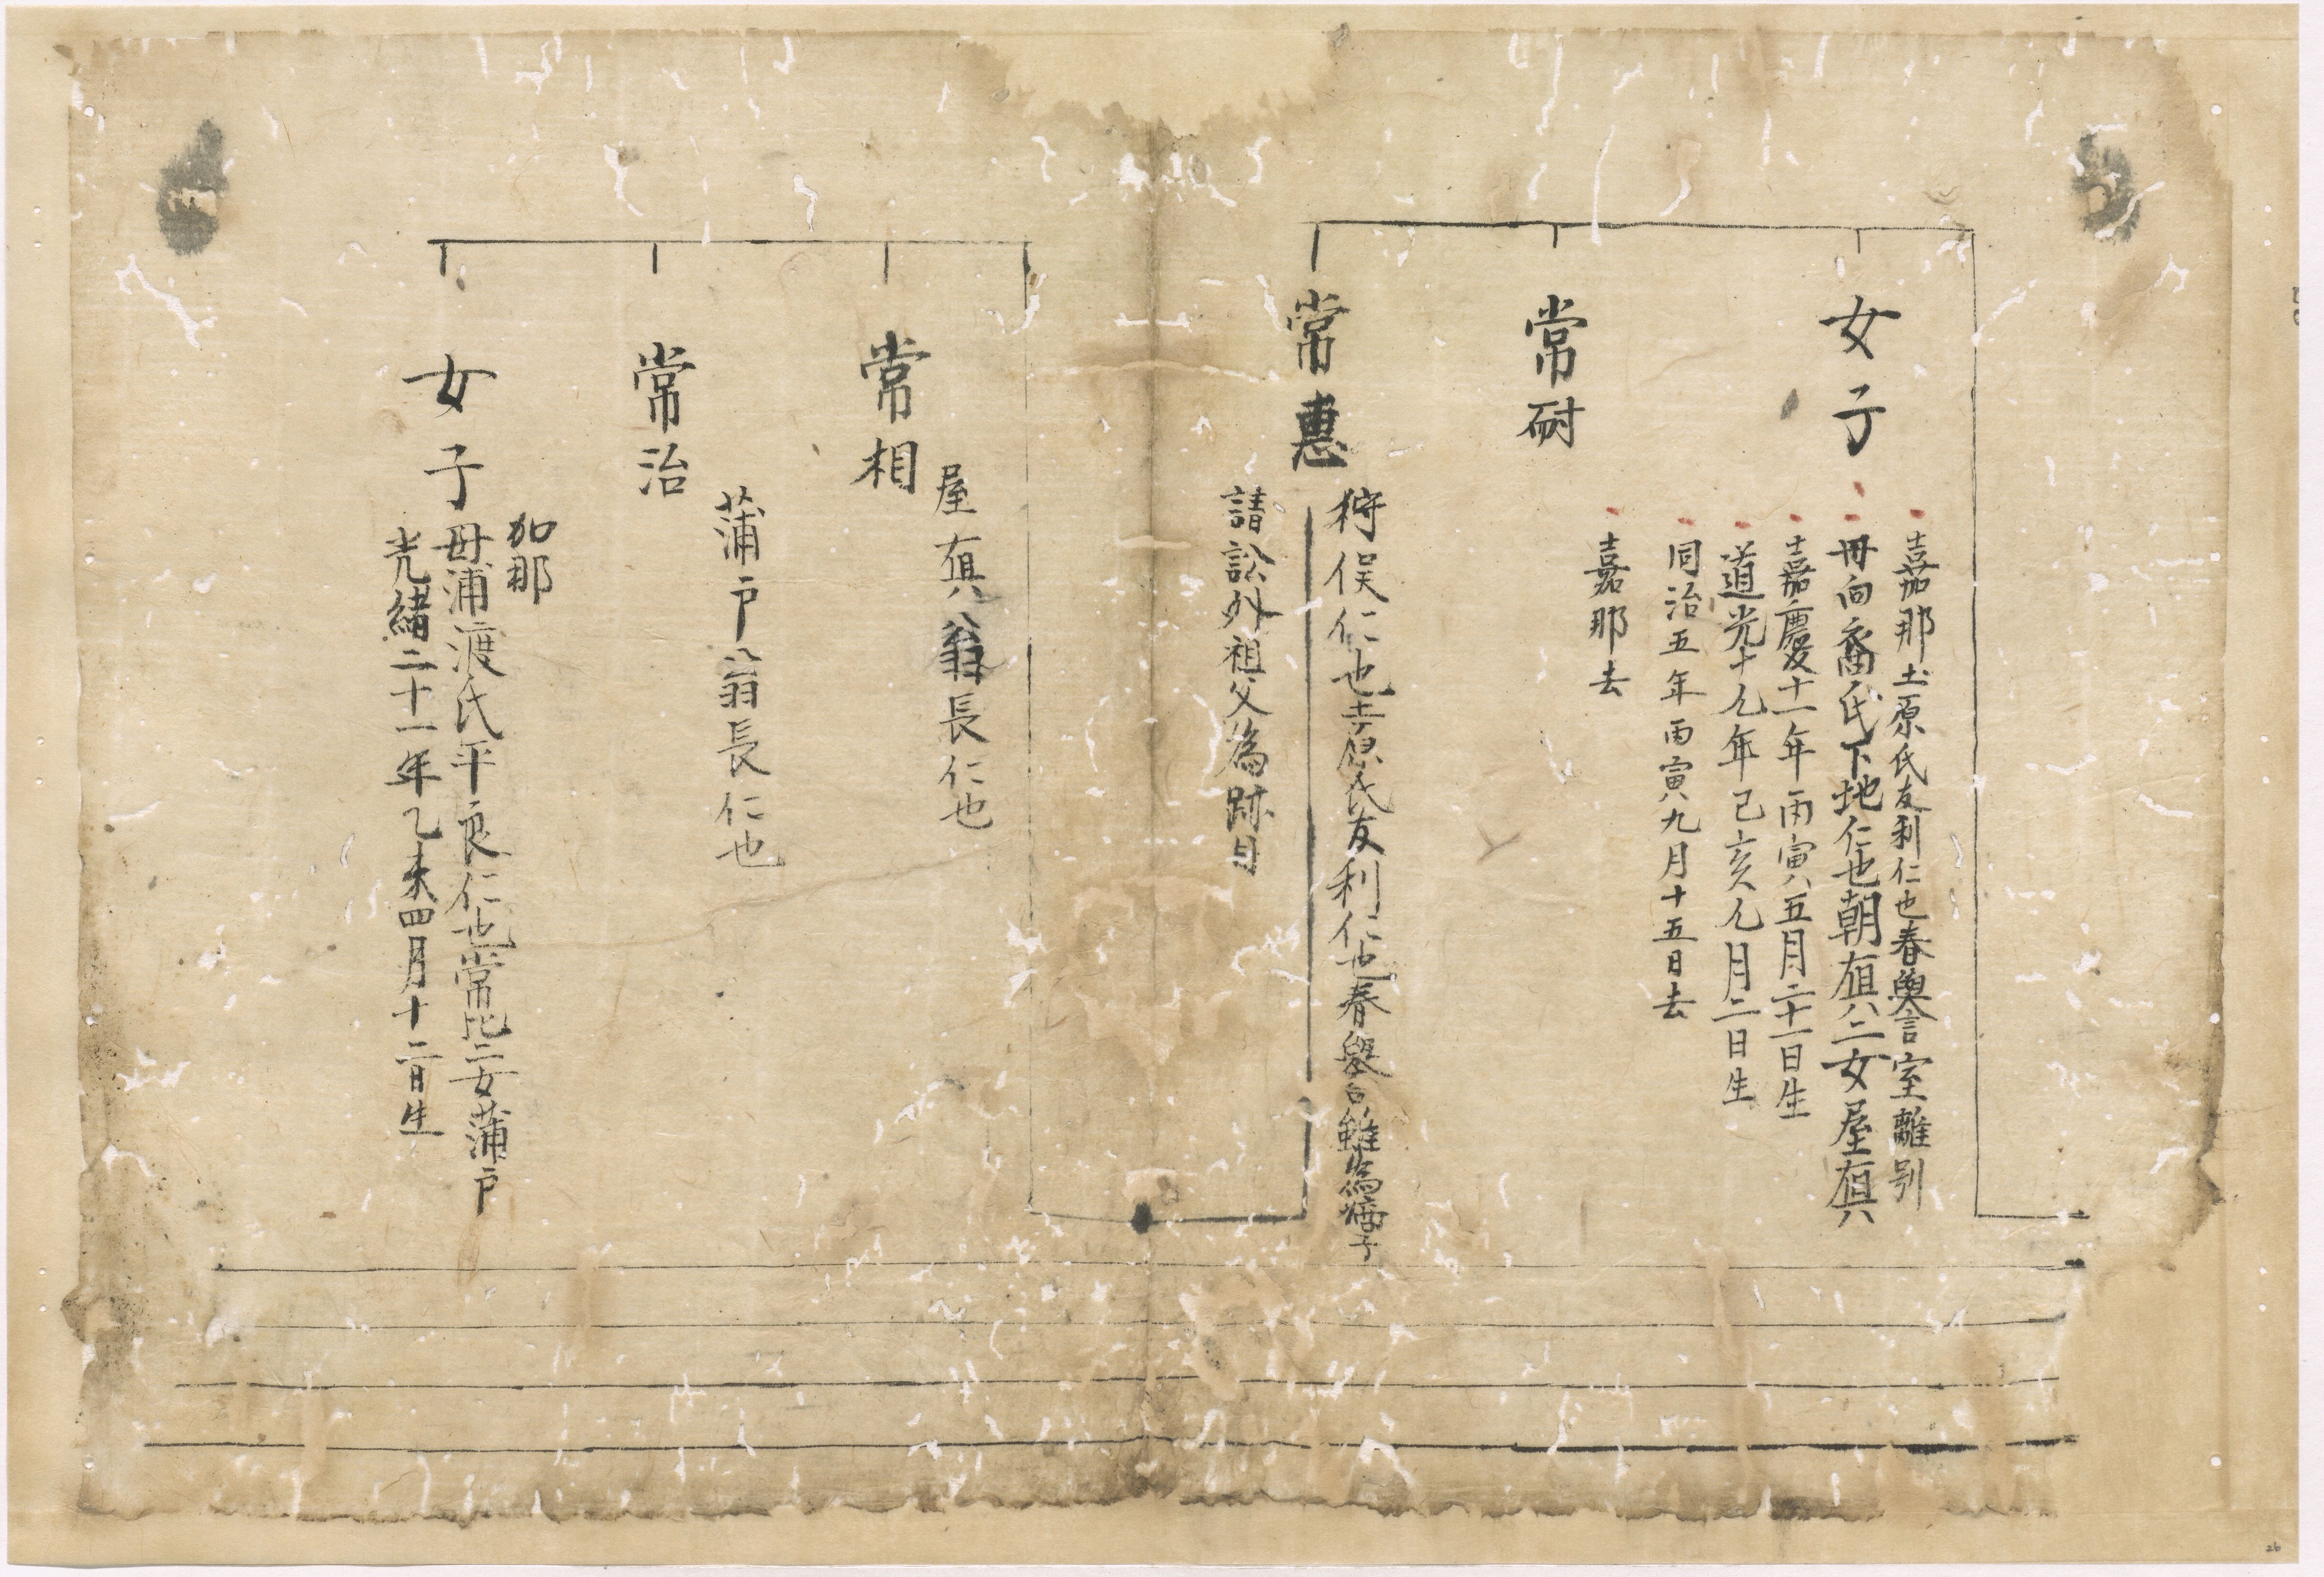 女子
嘉那土原氏友利仁也春與言室離別
毋向裔氏下地仁也朝
二女屋
嘉慶十一年丙寅五月二十一日生
道光十九年己亥九月二日生
同治五年丙寅九月十五日去
嘉那去
常耐
常惠
狩俣仁也
氏友利仁也春
請訟外祖父為跡目
常相
屋
翁長仁也
常治
蒲戸
翁長仁也
女子
加那
毋浦渡氏平良仁也常
二女蒲戸
光緒二十一年乙未四月十二日生
26